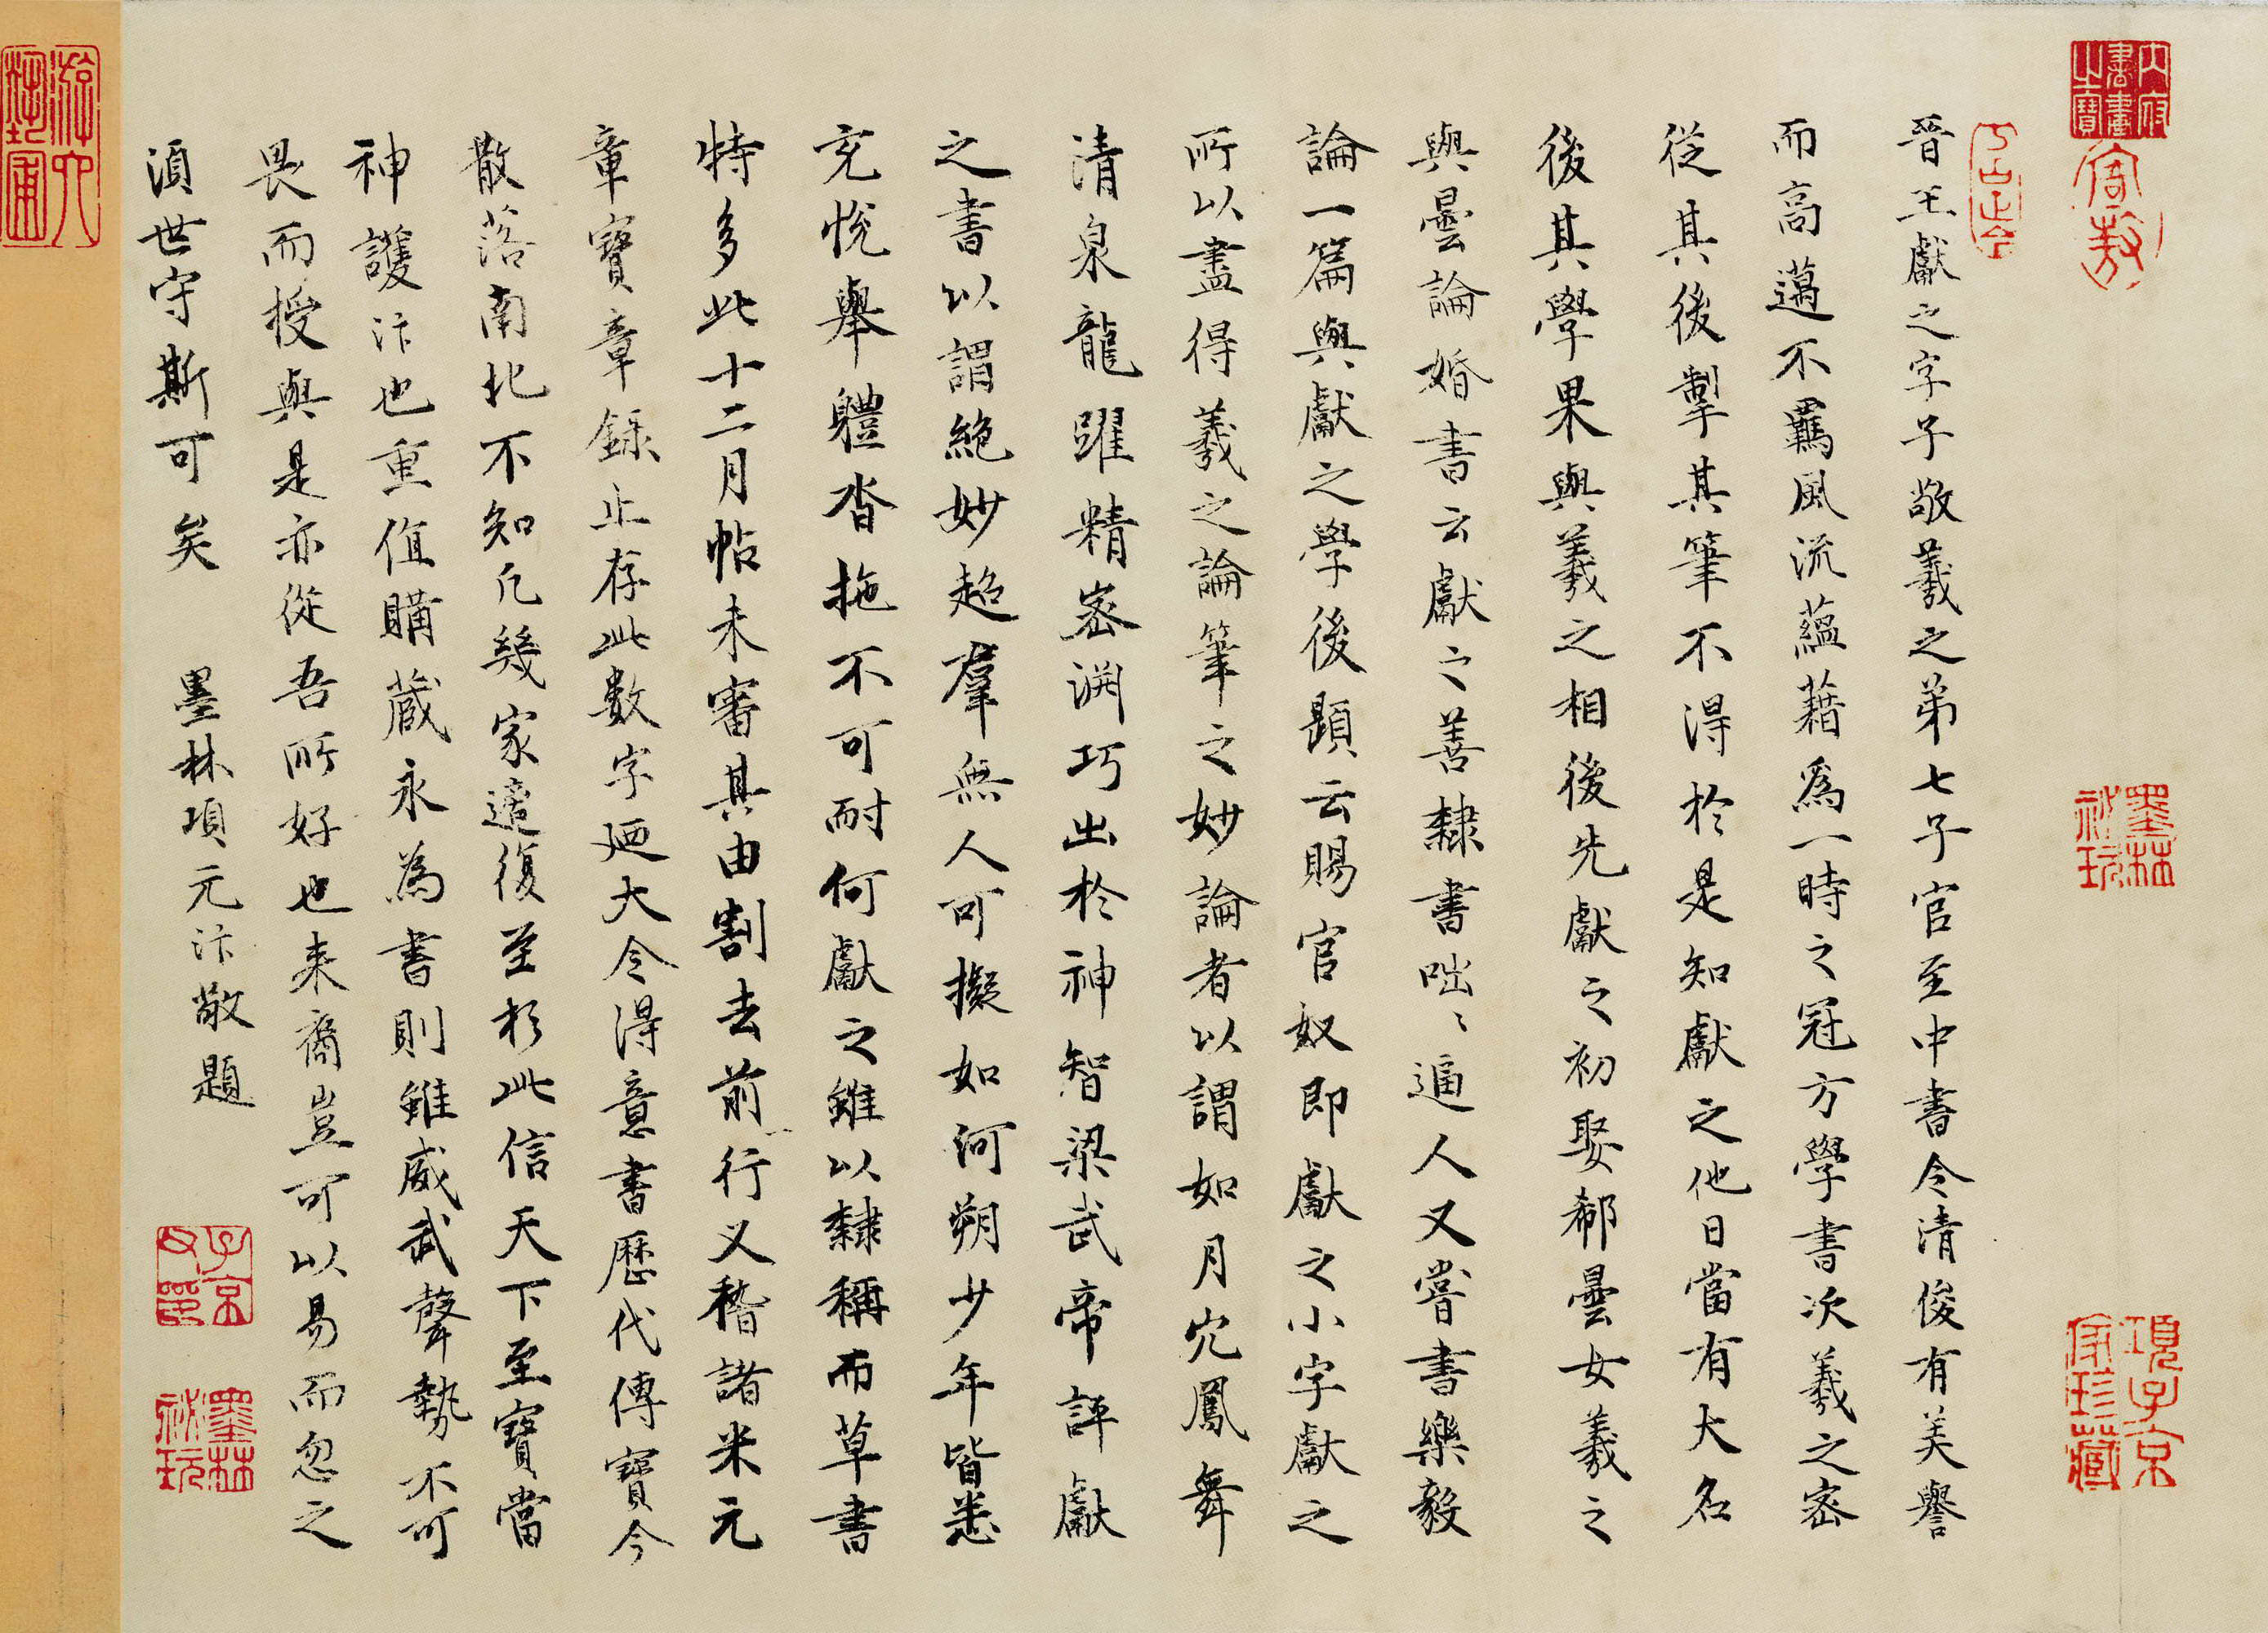 晉王獻之字子敬羲之弟七子官至中書令清俊有美譽
而高邁不羈風流蘊藉爲一時之冠方學書次羲之密
從其後掣其筆不得於是知獻之他日當有大名
後其學果與羲之相後先獻之初娶郗曇女羲之
與曇論婚書云獻之善隸書咄〻逼人又嘗書樂毅
論一篇與獻之學後題云賜官奴即獻之小字獻之
所以盡得羲之論筆之妙論者以謂如月穴鳳舞
清泉龍躍精密淵巧出於神智梁武帝評獻
之書以謂絶妙超羣無人可擬如河朔少年皆悉
充悅舉體沓拖不可耐何獻之雖以隸稱而草書
特多此十二月帖未審其由割去前行又稽諸米元
章寶章錄止存此數字廼大令得意書歷代傳寶今
散落南北不知凢幾家遞復至於此信天下至寶當
神護汴也重值購藏永為書則雖威武聲勢不可
畏而授與是亦從吾所好也来裔豈可以易而忽之
湏世守斯可矣 墨林項元汴敬題
內府書畫之寶
寄敖
墨林祕玩
項子京家珍藏
子京父印
墨林祕玩